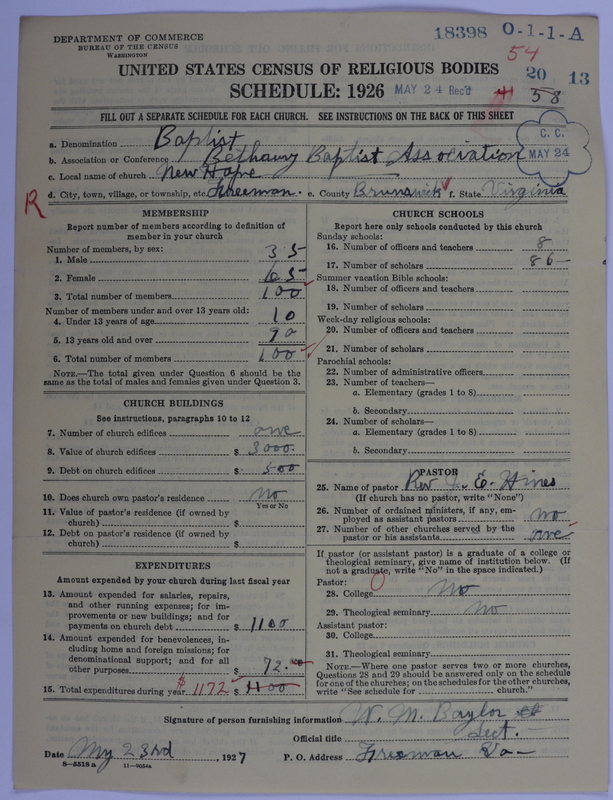 DEPARTMENT OF COMMERCE
BUREAU OF THE CENSUS
WASHINGTON
18398 O-1-1-A
54
20 13
41 58
UNITED STATES CENSUS OF RELIGIOUS BODIES
SCHEDULE: 1926 MAY 24 Rec'd
FILL OUT A SEPARATE SCHEDULE FOR EACH CHURCH. SEE INSTRUCTIONS ON THE BACK OF THIS SHEET
C. C.
MAY 24
a. Denomination Baptist
b. Association or Conference Bethany Baptist Association
c. Local name of church New Hope
d. City, town, village, or township, etc. Freeman. e. County Brunswick f. State Virginia
R
MEMBERSHIP
Report number of members according to definition of
member in your church
Number of members, by sex:
1. Male 35
2. Female 65
3. Total number of members 100
Number of members under and over 13 years old:
4. Under 13 years of age 10
5. 13 years old and over 90
6. Total number of members 100
NOTE.—The total given under Question 6 should be
same as the total of males and females given under Question 3.
CHURCH BUILDINGS
See instructions, paragraphs 10 to 12
7. Number of church edifices one
8. Value of church edifices $ 3000.
9. Debt on church edifices $ 500
10. Does church own pastor's residence No
Yes or No
11. Value of pastor's residence (if owned by
church) $
12. Debt on pastor's residence (if owned by
church) $
EXPENDITURES
Amount expended by your church during last fiscal year
13. Amount expended for salaries, repairs,
and other running expenses; for im-
provements or new buildings; and for
payments on church debt $ 1100
14. Amount expended for benevolences, in-
cluding home and foreign missions; for
denominational support; and for all
other purposes $ 72.00
15. Total expenditures during year $1172 $ 1100
CHURCH SCHOOLS
Report here only schools conducted by this church
Sunday schools:
16. Number of officers and teachers 8
17. Number of scholars 86
Summer vacation Bible schools:
18. Number of officers and teachers
19. Number of scholars
Week-day religious schools:
20. Number of officers and teachers
21. Number of scholars
Parochial schools:
22. Number of administrative officers
23. Number of teachers—
a. Elementary (grades 1 to 8)
b. Secondary
24. Number of scholars—
a. Elementary (grades 1 to 8)
b. Secondary
PASTOR
25. Name of pastor Rev E. Hines
(If church has no pastor, write "None")
26. Number of ordained ministers, if any, em-
ployed as assistant pastors no
27. Number of other churches served by the
pastor or his assistants one
If pastor (or assistant pastor) is a graduate of a college or
theological seminary, give name of institution below. (If
not a graduate, write "No" in the space indicated.)
Pastor:
28. College No
29. Theological seminary No
Assistant pastor:
30. College
31. Theological seminary
NOTE.—Where one pastor serves two or more churches,
Questions 28 and 29 should be answered only on the schedule
for one of the churches; on the schedules for the other churches,
write "See schedule for church."
Signature of person furnishing information W. M. Baylor
Official title Sect.
Date My 23rd, 1927 P. O. Address Freeman Va
8—5518a 11—9054a